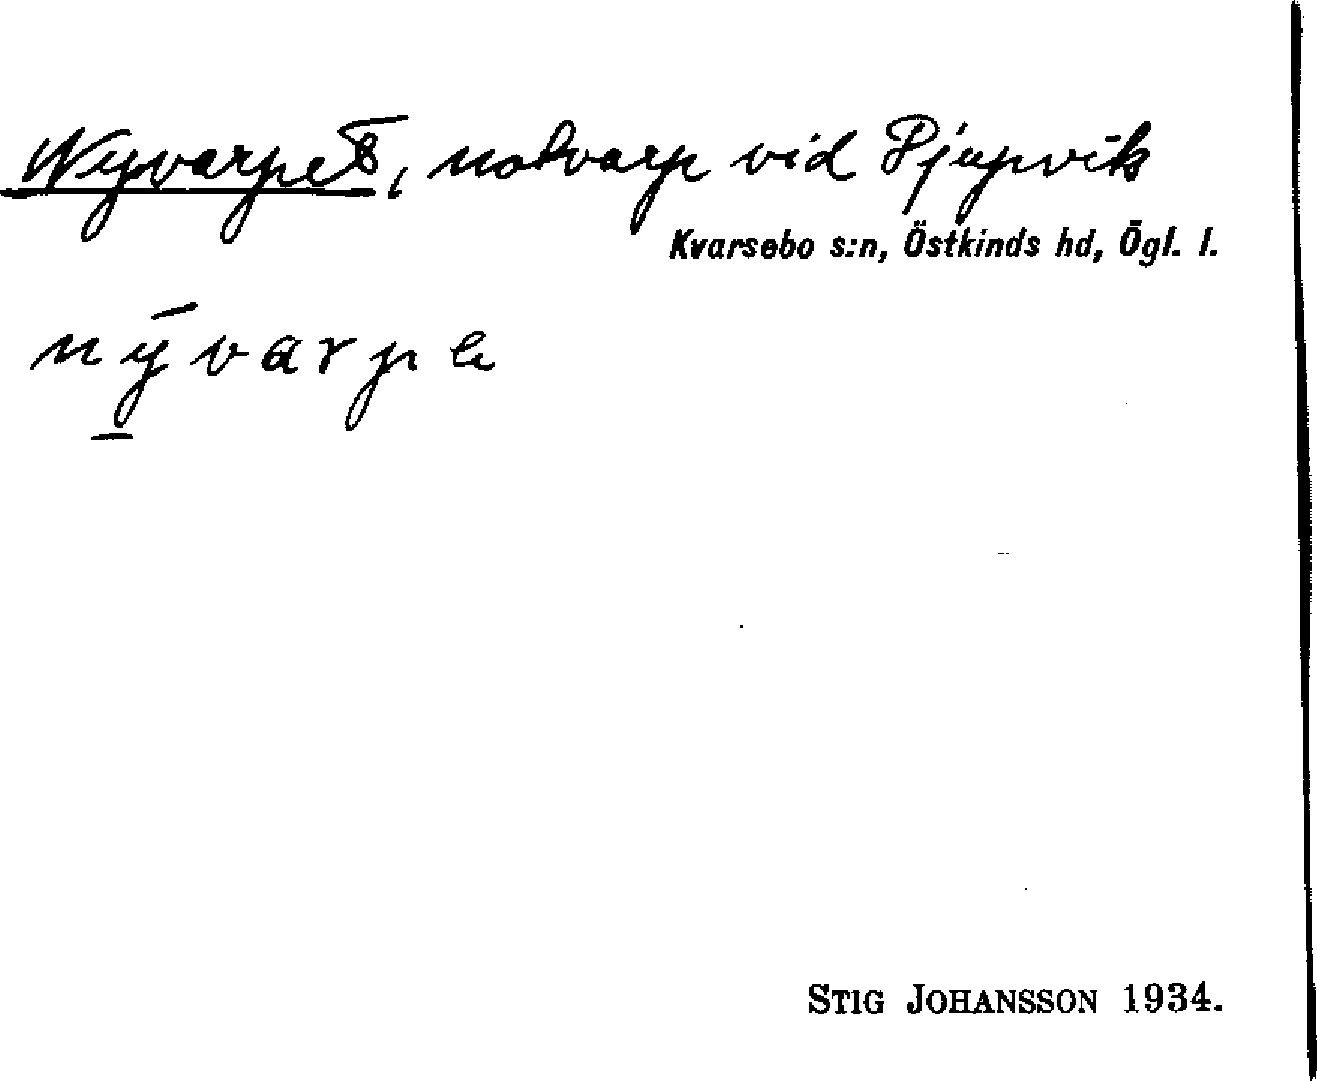 Nyvarpet, notvarp vid Djupvik
Kvarsebo s:n, Östkinds hd, Ögl. l.
nȳvarpe
STIG JOHANSSON 1934.